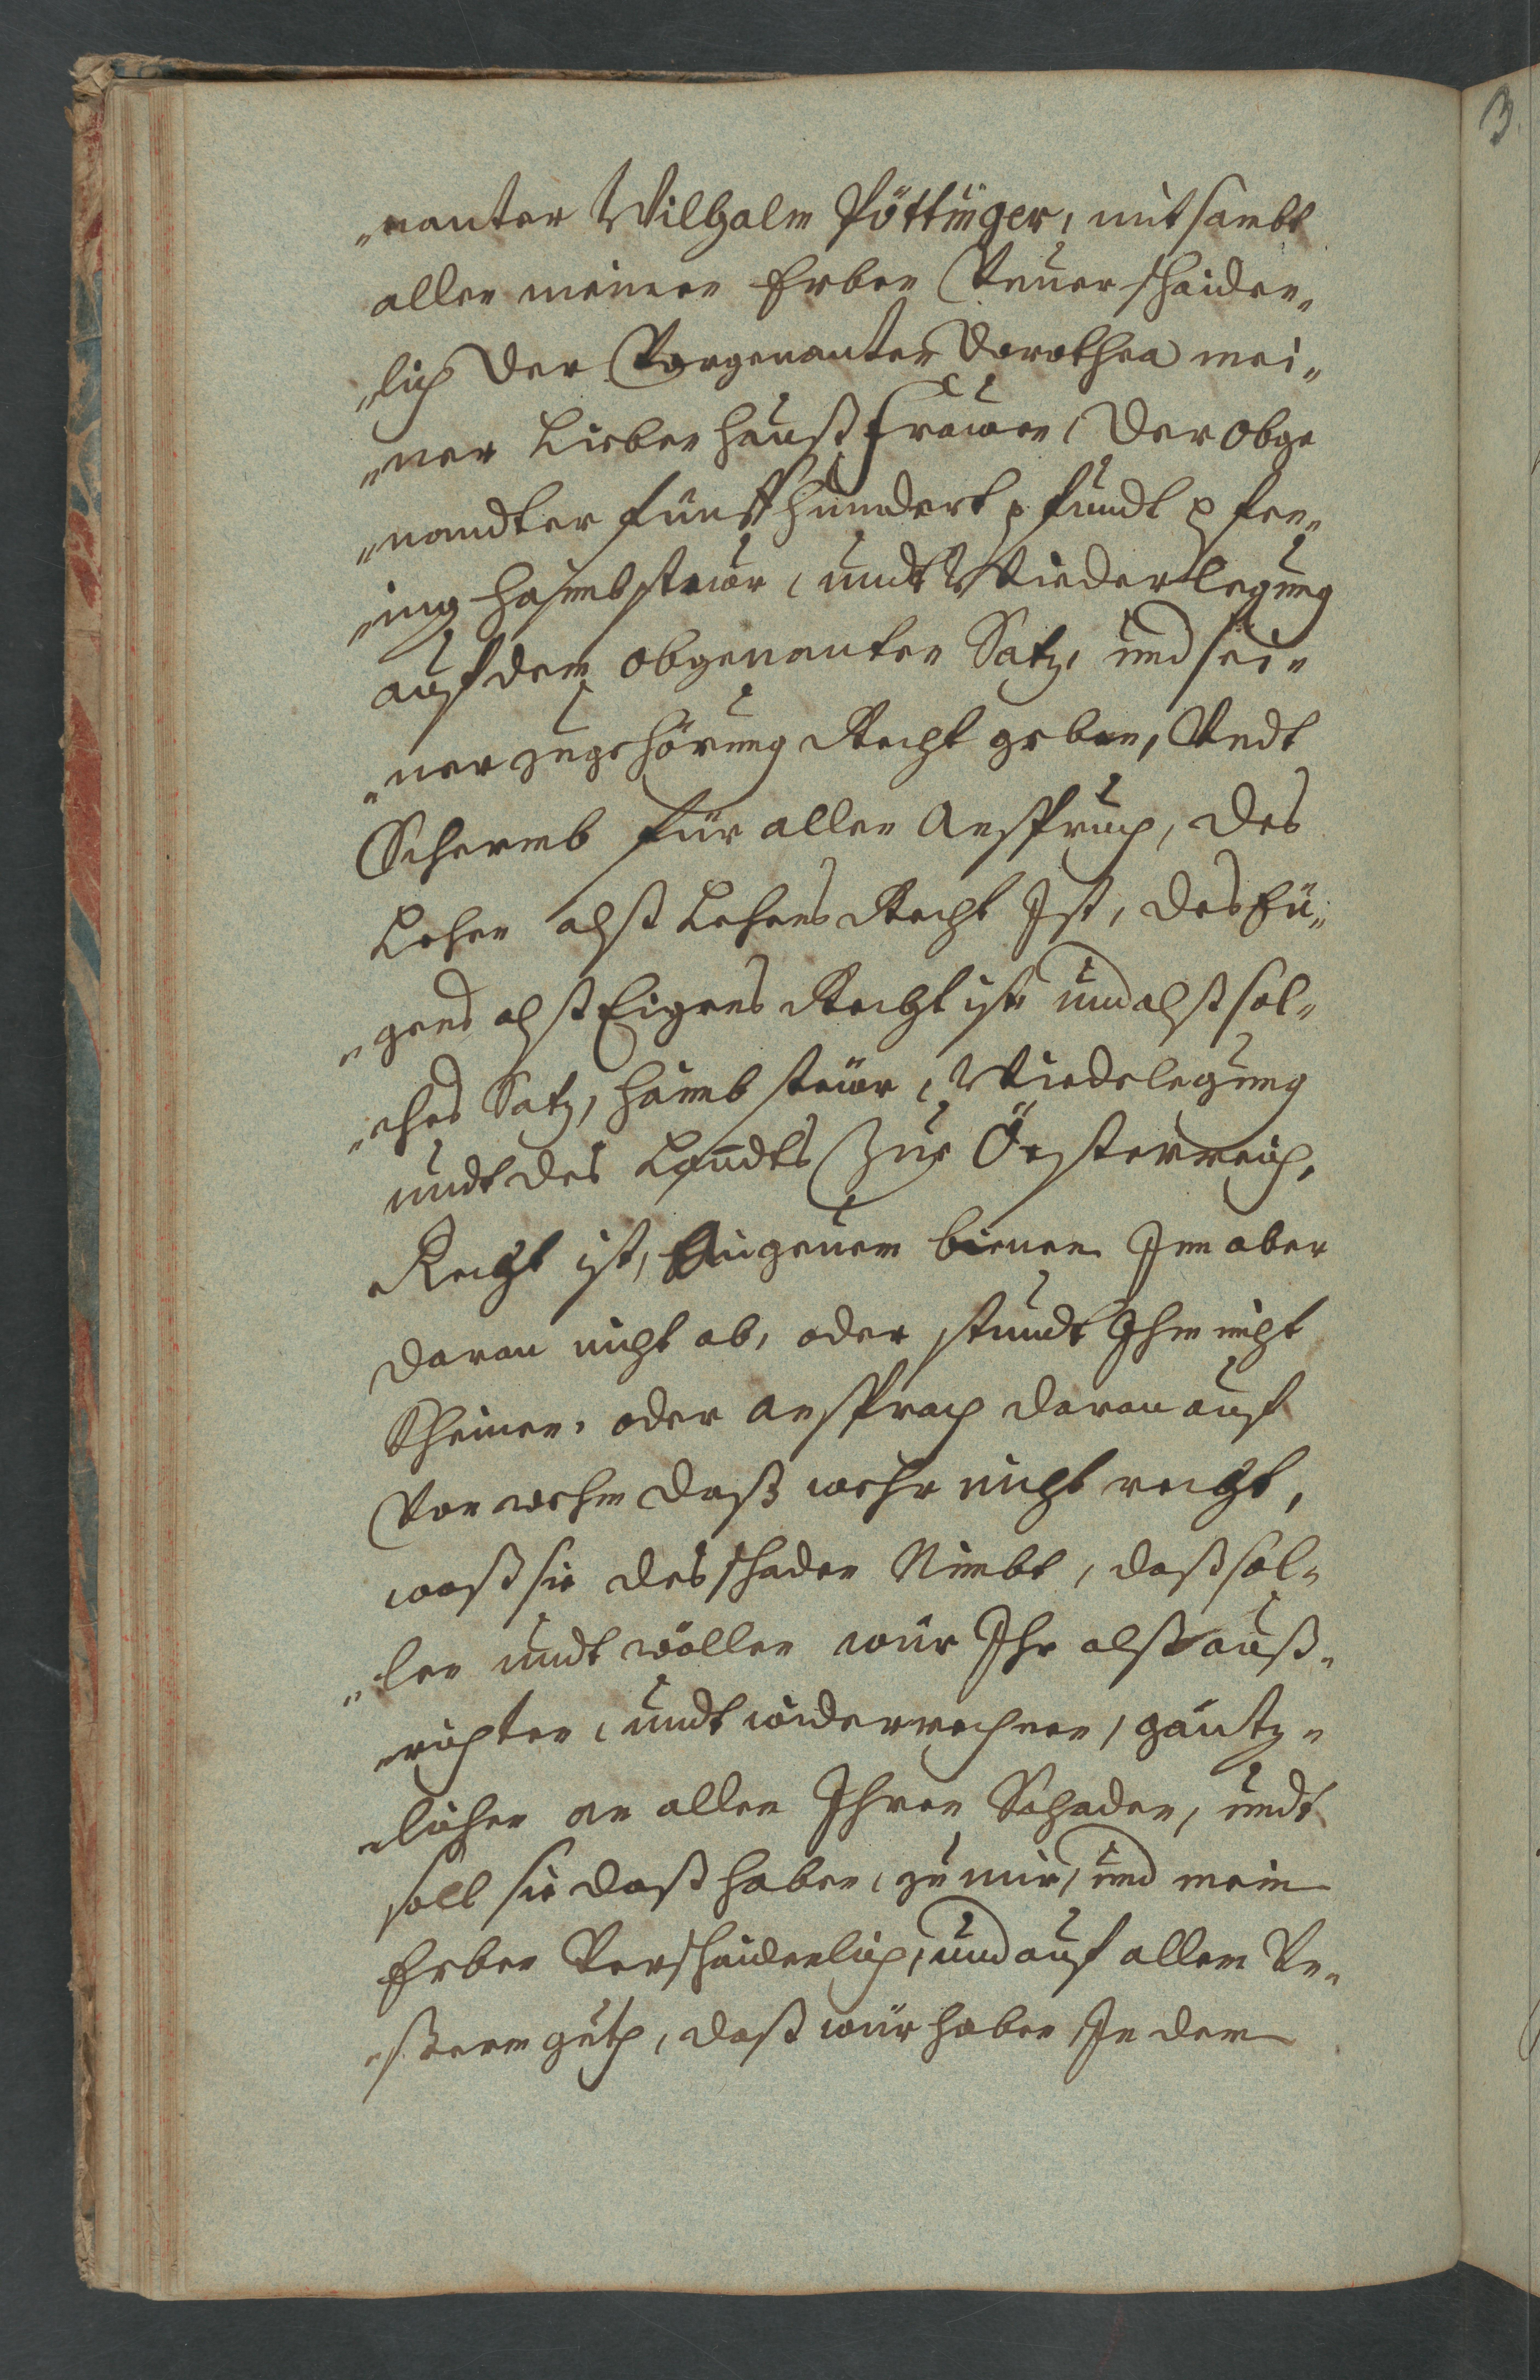 „nanter Wilhalm Pöttinger, mit sambt
allen meinen Erben Vnuerschaiden„
„lich der Vorgenanten Dorothea mei„
„ner Lieben haußfrauen, der obge
„nandten fünffhundert pfundt pfen„
„ing haimbsteüer, undt Wiederlegung
auf dem obgenanten Satz, und sei„
„ner zugehörung Recht geben, Vndt
Schermb für allen Anspruch, des
Lehen alß Lehens Recht Ist, des Ey„
„gens alß Eigens Recht ist, und alß sol„
„ches Satz, haimbsteüer, Wiedelegung
undt des Landts Zue Össterreich,
Recht ist, gienge bienen Inn aber
daran nicht ab, oder stundt Ihm icht
Khrieg, oder ansprach daran auf
Von wehm daß wehr nicht recht,
waß sie des schaden Nimbt, daß sol„
„len undt wöllen wür Ihr alß auß„
„richten, undt widerrechnen, gäntz„
„lichen an allen Ihren Schaden, undt
soll sie daß haben, zu mir, und mein
Erben Verschaidenlich, und auf allem Vn„
„ßerm guth, daß wür haben In dem
3.